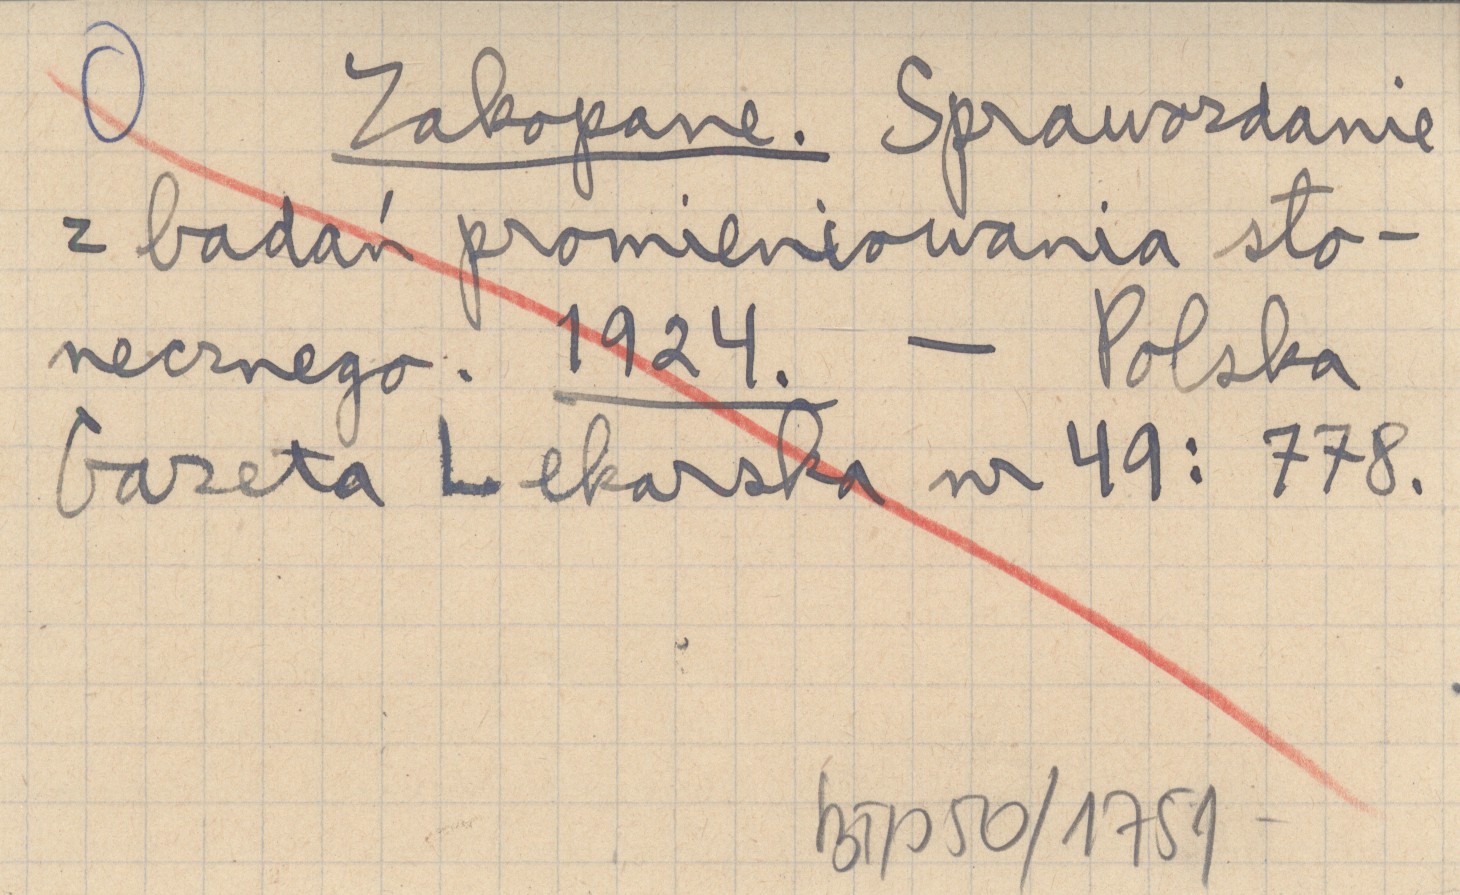 O Zakopane. Sprawozdanie
z badań promieniowania sło-
necznego. 1924. — Polska
Gazeta Lekarska nr 49: 778.
BTP50/1751 -